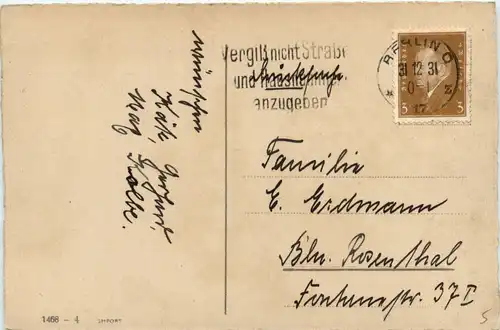 wünschen
Käte, Gerhard,
Max Kolbe.
Vergiß nicht Straße
und Hausnummer
anzugeben
Drucksache.
BERLIN O
31 12 31
17
3 3
Familie
E. Erdmann
Bln. Rosenthal
Fontanestr. 37 I
1468 - 4
5